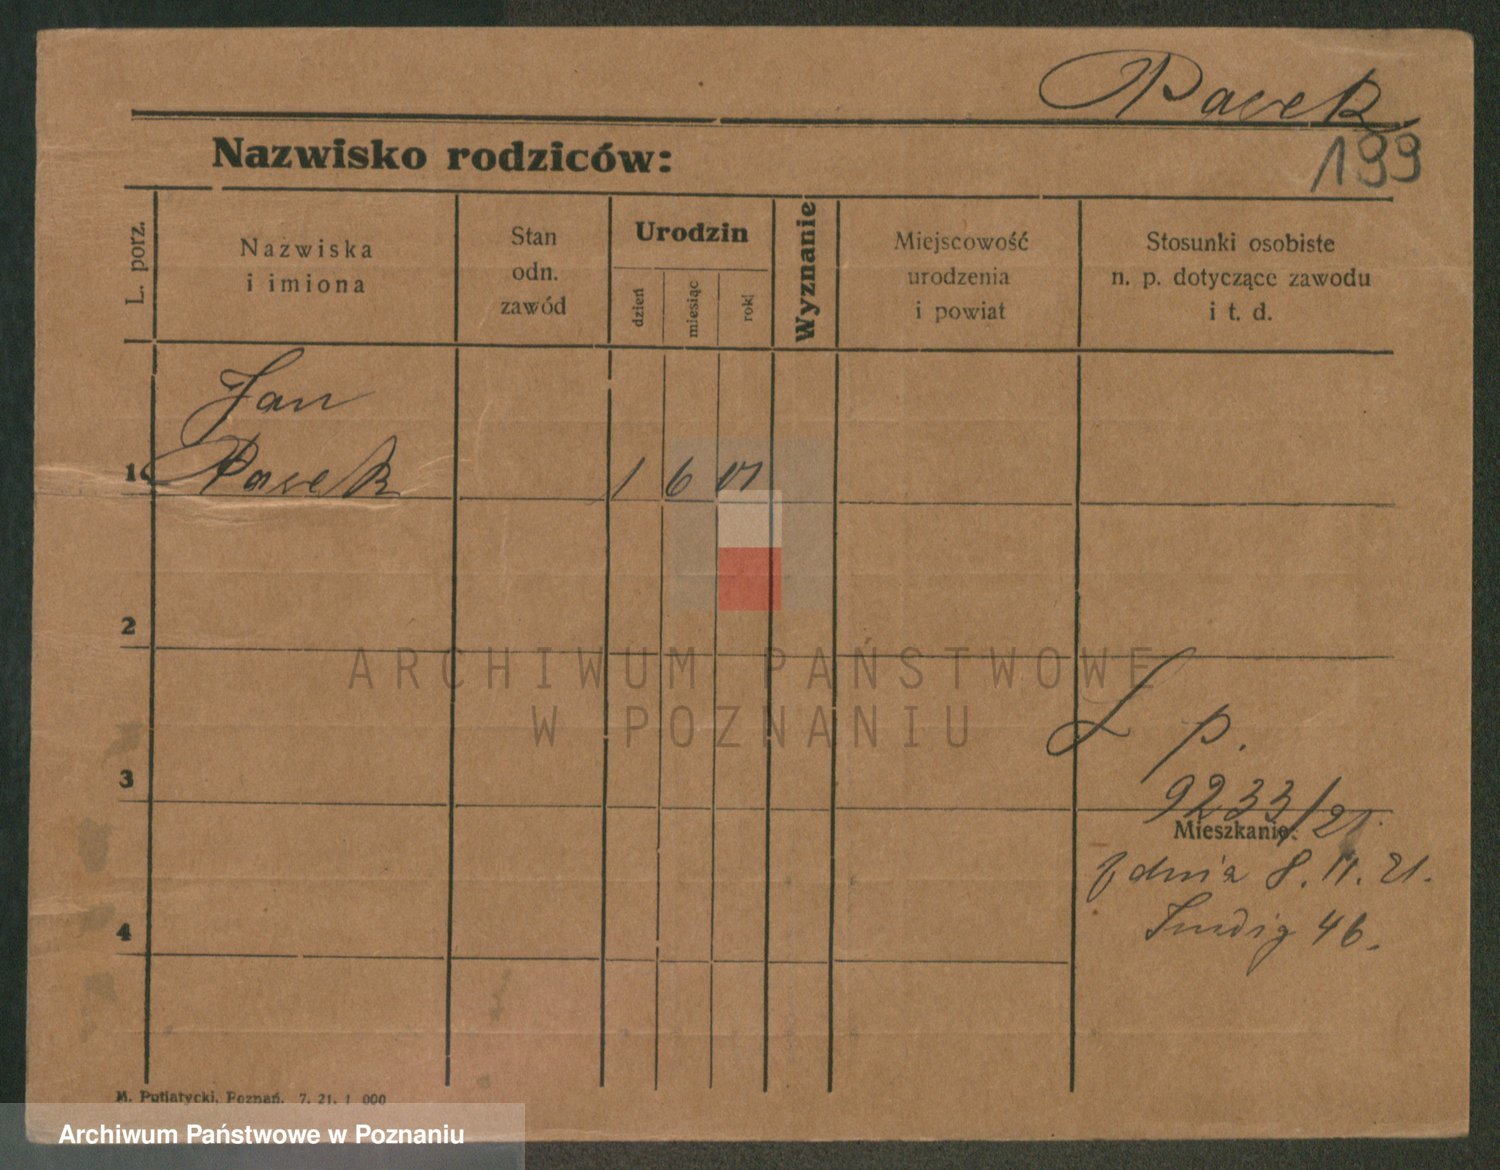 Pacek
199
Nazwisko rodziców:
L. porz.
Nazwiska
i imiona
Stan
odn.
zawód
Urodzin
dzień
miesiąc
rok
Wyznanie
Miejscowość
urodzenia
i powiat
Stosunki osobiste
n. p. dotyczące zawodu
i t. d.
Jan
1 Pacek 1 6 01
2
ARCHIWUM PAŃSTWOWE
W POZNANIU
3
p.
9233/21.
Mieszkanie:
z dnia 8. 11. 21.
46.
4
M. Putiatycki, Poznań. 7. 21. 1 000
Archiwum Państwowe w Poznaniu